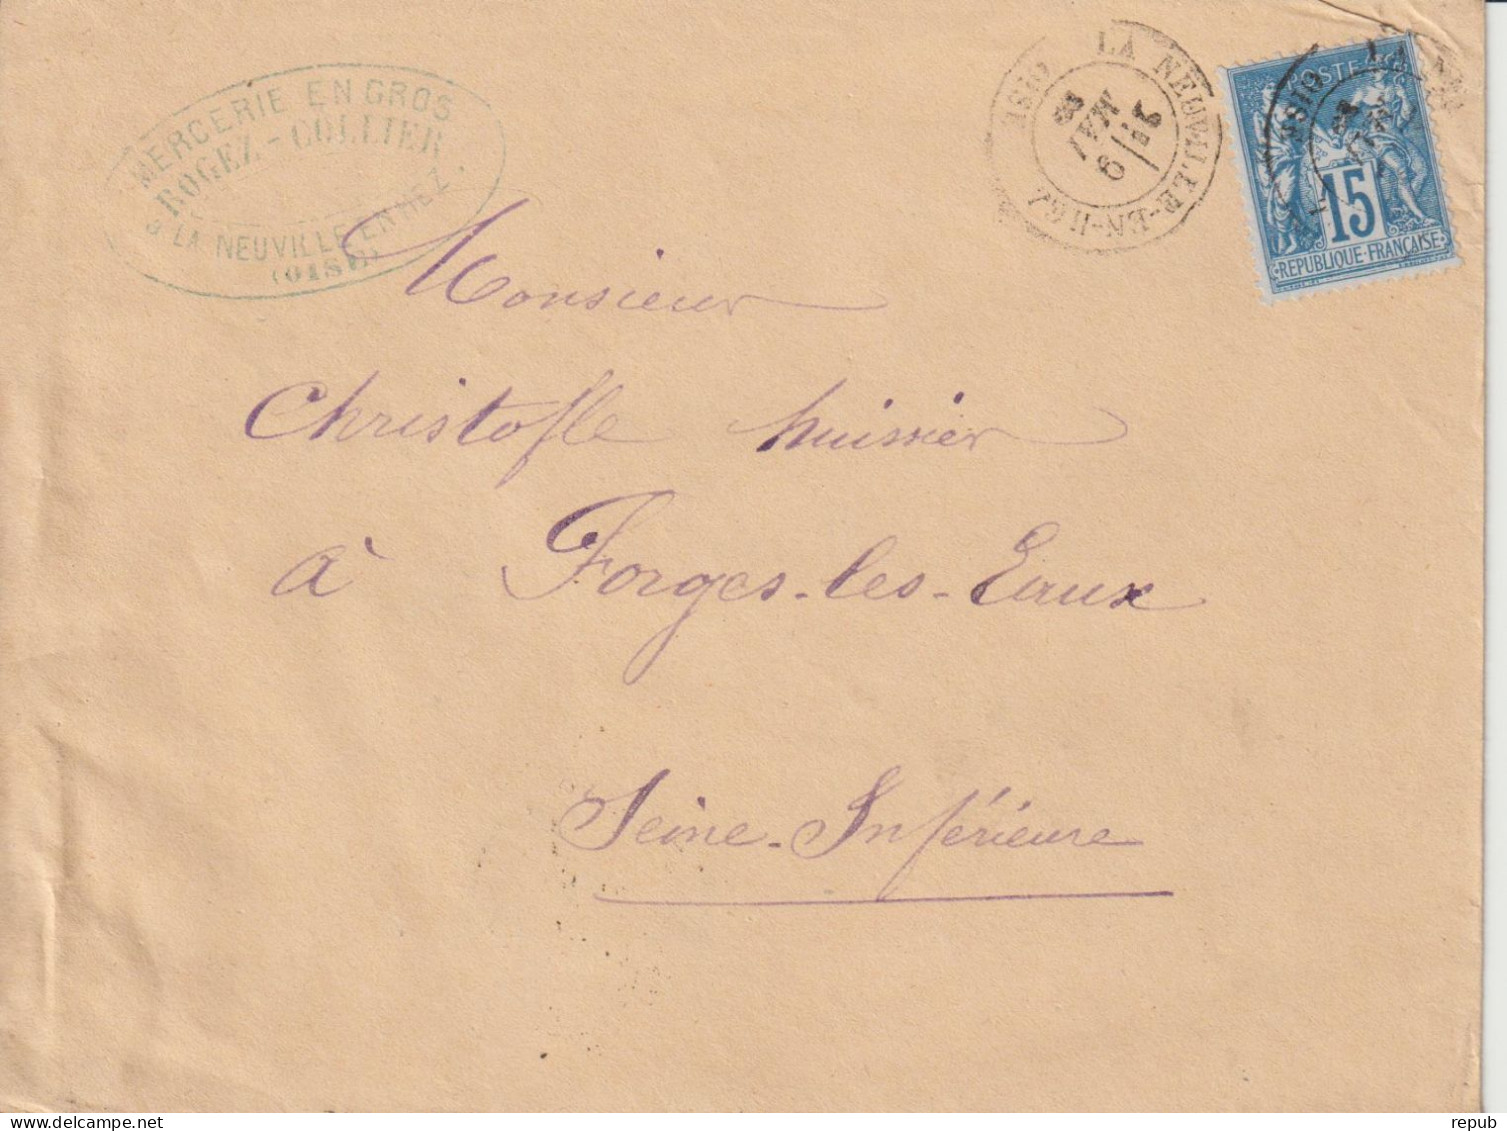 MERCERIE EN GROS
ROGEZ-COLLIER
à LA NEUVILLE EN HEZ.
(OISE)
LA NEUVILLE-EN-HEZ
OISE
MAI
POSTE
15
REPUBLIQUE FRANÇAISE
OISE
Monsieur
Christofle huissier
à Forges-les-Eaux
Seine-Inférieure
repub